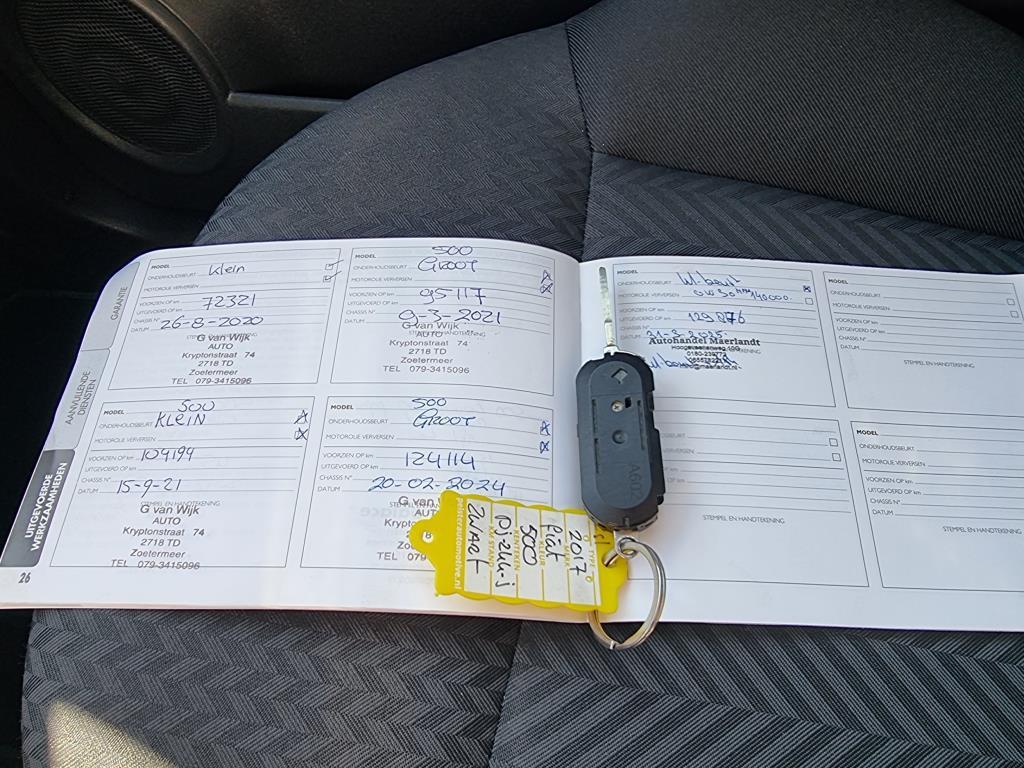 GARANTIE
AANVULLENDE
DIENSTEN
UITGEVOERDE
WERKZAAMHEDEN
26
MODEL
ONDERHOUDSBEURT Klein
MOTOROLIE VERVERSEN
VOORZIEN OP km
UITGEVOERD OP km 72321
CHASSIS N°
DATUM 26-8-2020
G van Wijk
AUTO
Kryptonstraat 74
2718 TD
Zoetermeer
TEL 079-3415096
MODEL 500
ONDERHOUDSBEURT GROOT
MOTOROLIE VERVERSEN
VOORZIEN OP km
UITGEVOERD OP km 95117
CHASSIS N°
DATUM 9-3-2021
G van Wijk
AUTO
Kryptonstraat 74
2718 TD
Zoetermeer
TEL 079-3415096
MODEL 500
ONDERHOUDSBEURT KLEIN
MOTOROLIE VERVERSEN
VOORZIEN OP km 109194
UITGEVOERD OP km
CHASSIS N°
DATUM 15-9-21
STEMPEL EN HANDTEKENING
G van Wijk
AUTO
Kryptonstraat 74
2718 TD
Zoetermeer
TEL 079-3415096
MODEL 500
ONDERHOUDSBEURT GROOT
MOTOROLIE VERVERSEN
VOORZIEN OP km
UITGEVOERD OP km 124114
CHASSIS N°
DATUM 20-02-2024
G van
AUT
Krypto
MODEL
ONDERHOUDSBEURT
MOTOROLIE VERVERSEN
VOORZIEN OP km 140000.
UITGEVOERD OP km 129076
CHASSIS N°
DATUM 21-3-2025
Autohandel Maerlandt
MODEL
ONDERHOUDSBEURT
MOTOROLIE VERVERSEN
VOORZIEN OP km
UITGEVOERD OP km
CHASSIS N°
DATUM
STEMPEL EN HANDTEKENING
STEMPEL EN HANDTEKENING
MODEL
ONDERHOUDSBEURT
MOTOROLIE VERVERSEN
VOORZIEN OP km
UITGEVOERD OP km
CHASSIS N°
DATUM
STEMPEL EN HANDTEKENING
2017
Fiat
500
KENTEKEN
KM STAND
Zwart